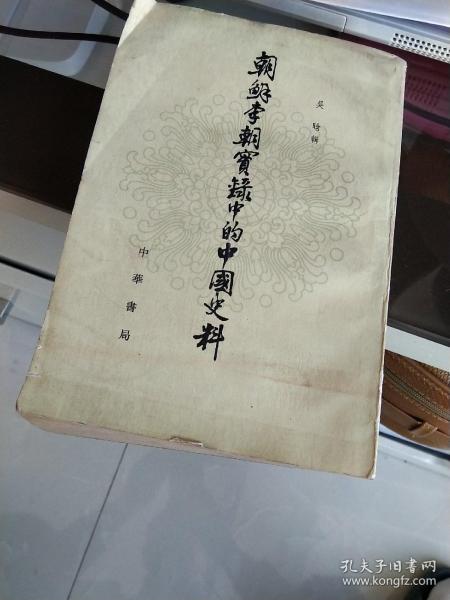 吴晗辑
朝鲜李朝實録中的中國史料
中華書局
孔夫子旧书网
www.kongfz.com